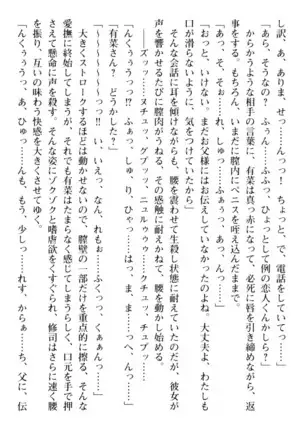 し訳、あ、ありま、せっ……んっっ！　ちょっと、で、電話をしていて
ぇ、あっ、そ、そんなの、ふぁ……ん」
「ふーん？　ふふっ、ひょっとして例の恋人くんかしら？」
からかうような相手の言葉に、有菜は真っ赤になって、必死に唇を引き締めながら、返
事をする。もちろん、いまだに膣内にペニスを咥え込んだままで。
「あっ、そ、それぇっ……れ、しゅ、ふぁぅっ、あっ、んっ……」
「おっと、いけない。まだお父様にはお伝えしていなかったのよね。大丈夫よ、わたしも
口が滑らないように、気をつけていたから」
そんな会話に耳を傾けながらも、腰を震わせて生殺し状態に耐えていたのだが、彼女が
声を響かせるたびに膣肉がうねり、その感触に耐えかねて、腰を動かし始める。
――ズッッ……ヌチュッ、グプッッ、ニュルゥゥゥ……クチュッ、チュプッ……
「んくぅうぅっっ!?　ふぁっ、しゅ、り、ひゃっ……はっ、ま、まっ……へ、んっ……」
「有菜さん？　どうかした？」
「ひっ……っっ！　い、いいえっ、なん、れも……ふくっっ、くぅぅっ……」
大きくストロークするほどは動かせないので、膣壁の一部だけを重点的に擦る、小さな
愛撫に終始してしまうが、それでも有菜はたまらなく感じてしまうらしく、口元を手で押
さえて懸命に声を殺す。そんな姿にゾクゾクと嗜虐欲をくすぐられ、修司はさらに速く腰
を振り、互いの味わう快感を大きくさせてゆく。
「んくぅぅうっ、あ、ひゅっ……んも、もう、少しっ……れす、からぁっ……ち、父に、伝